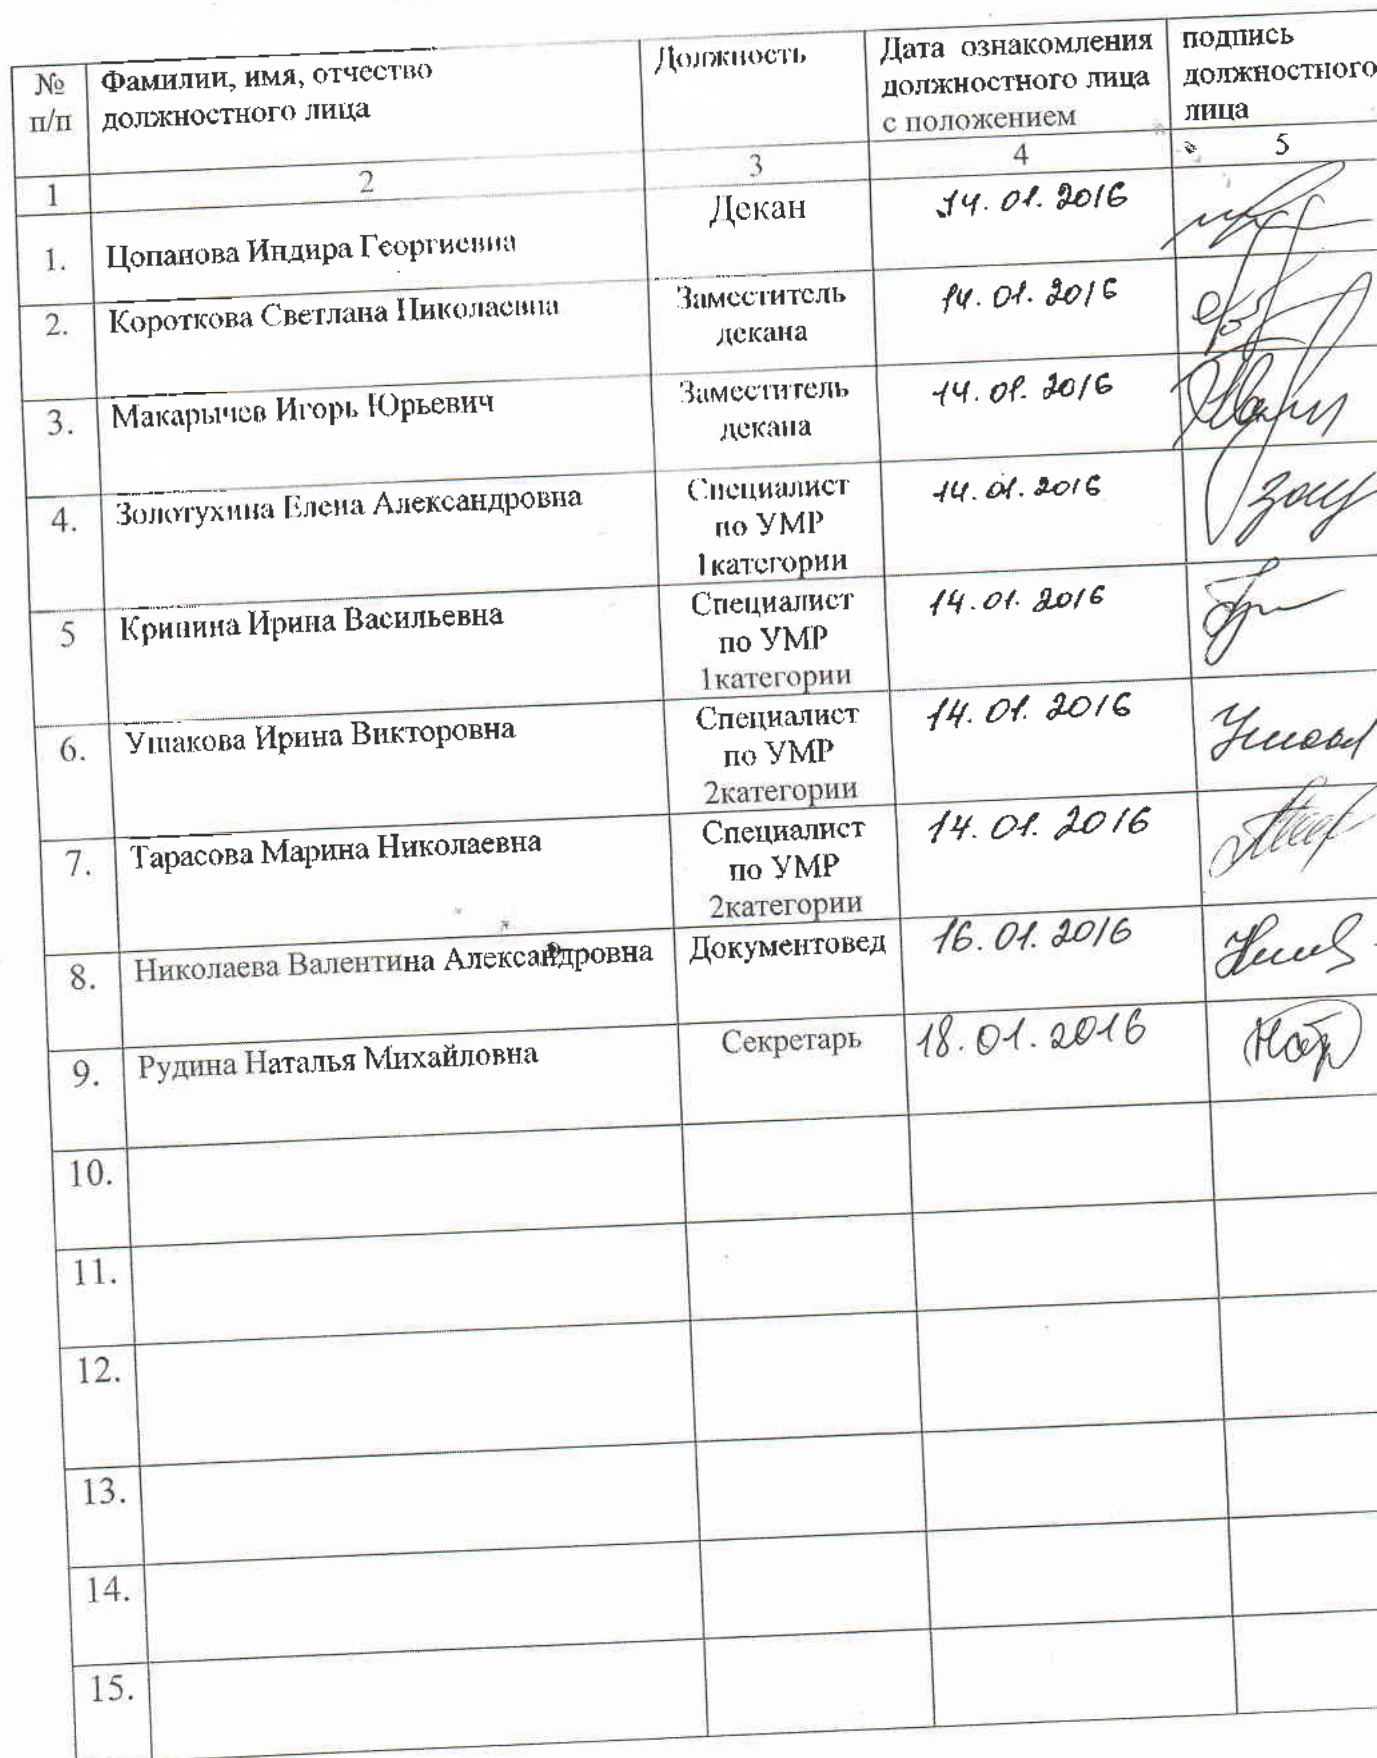 № п/п
Фамилии, имя, отчество
должностного лица
Должность
Дата ознакомления
должностного лица
с положением
подпись
должностного
лица
1 2 3 4 5
1. Цопанова Индира Георгиевна Декан 14.01.2016
2. Короткова Светлана Николаевна Заместитель 14.01.2016
декана
3. Макарычев Игорь Юрьевич Заместитель 14.01.2016
декана
4. Золотухина Елена Александровна Специалист 14.01.2016
по УМР
1категории
5 Кринина Ирина Васильевна Специалист 14.01.2016
по УМР
1категории
6. Ушакова Ирина Викторовна Специалист 14.01.2016
по УМР
2категории
7. Тарасова Марина Николаевна Специалист 14.01.2016
по УМР
2категории
8. Николаева Валентина Александровна Документовед 16.01.2016
9. Рудина Наталья Михайловна Секретарь 18.01.2016
10.
11.
12.
13.
14.
15.